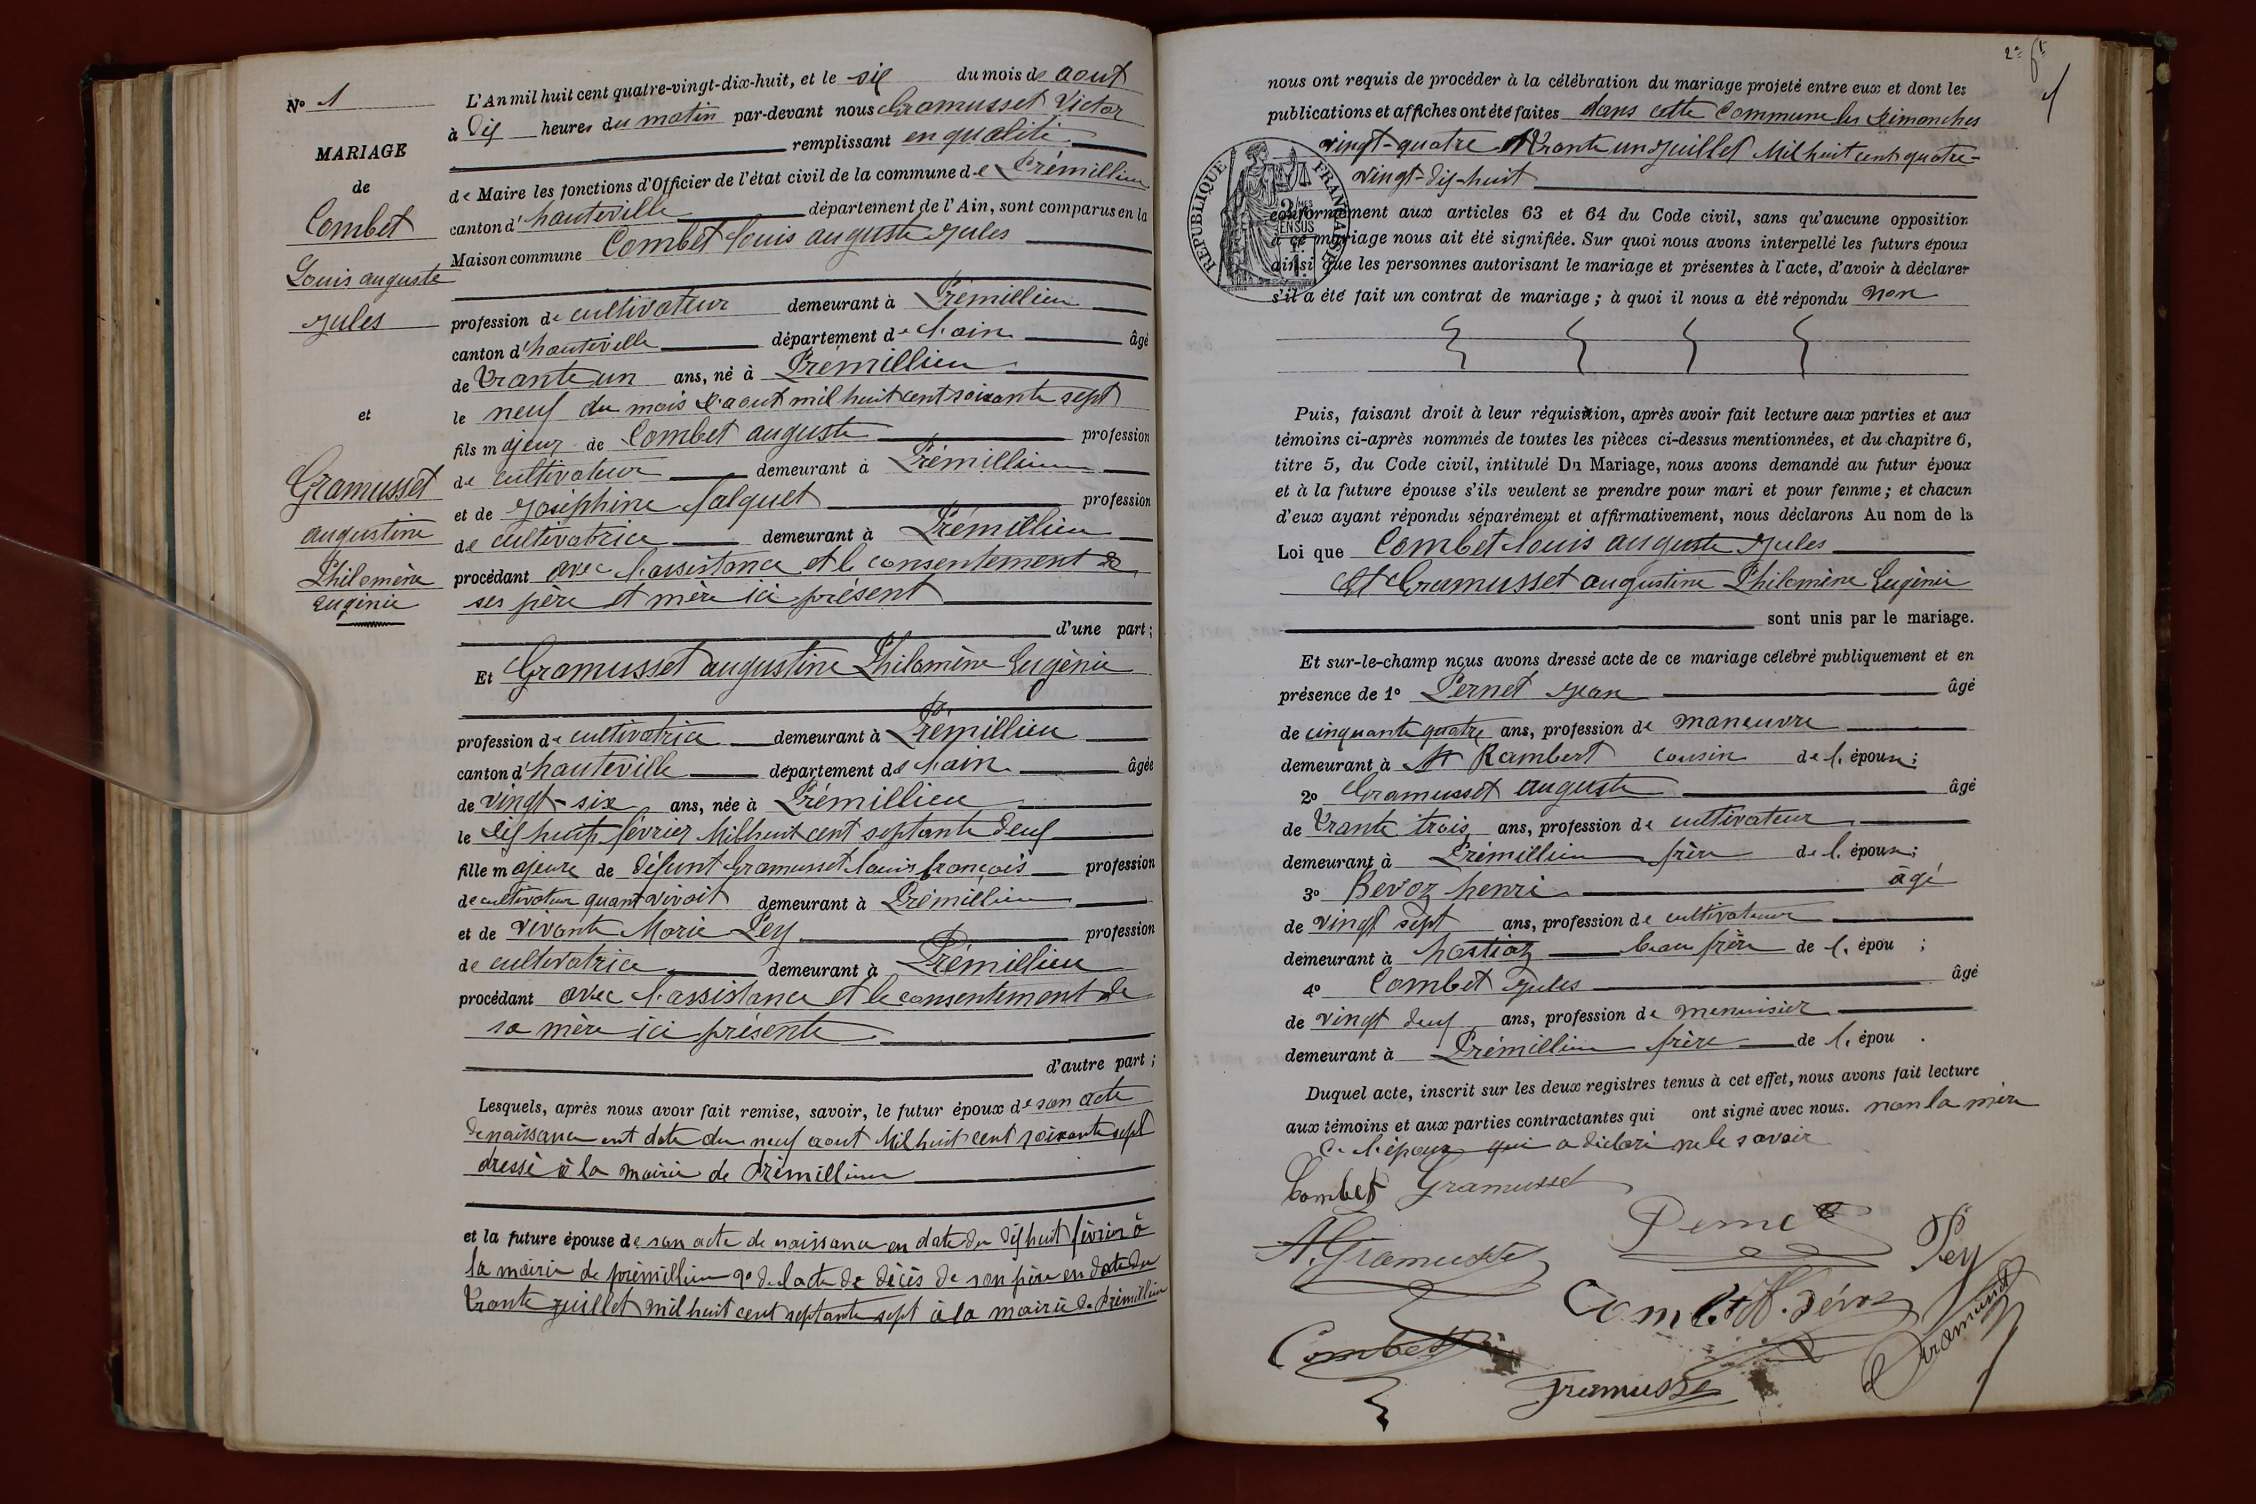 N° 1
MARIAGE
de
Combet
Louis auguste
Jules
et
Gramusset
augustine
Philomène
Eugénie
L'An mil huit cent quatre-vingt-dix-huit, et le six du mois de aout
à Dix heures du matin par-devant nous Gramusset Victor
remplissant en qualité
de Maire les fonctions d'Officier de l'état civil de la commune de Prémillieu
canton d'hauteville département de l'Ain, sont comparus en la
Maison commune Combet Louis auguste Jules
profession de cultivateur demeurant à Prémillieu
canton d'hauteville département de l'ain âgé
de Trante un ans, né à Prémillieu
le neuf du mois d'aout mil huit cent soixante sept
fils majeur de Combet auguste profession
de cultivateur demeurant à Prémillieu
et de Joséphine Falquet profession
de cultivatrice demeurant à Prémillieu
procédant avec l'assistance et le consentement de
ses père et mère ici présent
d'une part;
Et Gramusset augustine Philomène Eugénie
profession de cultivatrice demeurant à Prémillieu
canton d'hauteville département de l'ain âgée
de vingt-six ans, née à Prémillieu
le dix huit février Mil huit cent septante deux
fille majeure de défunt Gramusset Louis françois profession
de cultivateur quant vivait demeurant à Prémillieu
et de vivante Marie Pey profession
de cultivatrice demeurant à Prémillieu
procédant avec l'assistance et le consentement de
sa mère ici présente
d'autre part;
Lesquels, après nous avoir fait remise, savoir, le futur époux de son acte
de naissance ent date du neuf aout Mil huit cent soixante sept
dressé à la mairie de Prémillieu
et la future épouse de son acte de naissance en date du dix huit février à
la mairie de prémillieu 2° de l'acte de décès de son père en date du
Trante juillet mil huit cent septante sept à la mairie de Prémillieu
2e ft
nous ont requis de procéder à la célébration du mariage projeté entre eux et dont les
publications et affiches ont été faites dans cette Commune les Dimanches
vingt-quatre et Trante un juillet Mil huit cent quatre-
vingt-dix-huit
RÉPUBLIQUE FRANÇAISE
conformément aux articles 63 et 64 du Code civil, sans qu'aucune opposition
à ce mariage nous ait été signifiée. Sur quoi nous avons interpellé les futurs époux
ainsi que les personnes autorisant le mariage et présentes à l'acte, d'avoir à déclarer
s'il a été fait un contrat de mariage; à quoi il nous a été répondu non
Puis, faisant droit à leur réquisition, après avoir fait lecture aux parties et aux
témoins ci-après nommés de toutes les pièces ci-dessus mentionnées, et du chapitre 6,
titre 5, du Code civil, intitulé Du Mariage, nous avons demandé au futur époux
et à la future épouse s'ils veulent se prendre pour mari et pour femme; et chacun
d'eux ayant répondu séparément et affirmativement, nous déclarons Au nom de la
Loi que Combet Louis auguste Jules
Et Gramusset augustine Philomène Eugénie
sont unis par le mariage.
Et sur-le-champ nous avons dressé acte de ce mariage célébré publiquement et en
présence de 1° Pernet Jean âgé
de cinquante quatre ans, profession de maneuvre
demeurant à St Rambert cousin de l. épouse;
2° Gramusset auguste âgé
de Trante trois ans, profession de cultivateur
demeurant à Prémillieu frère de l. épouse;
3° Bevoz henri âgé
de vingt sept ans, profession de cultivateur
demeurant à hostiaz beau frère de l. épou ;
4° Combet Jules âgé
de vingt deux ans, profession de menuisier
demeurant à Prémillieu frère de l. épou .
Duquel acte, inscrit sur les deux registres tenus à cet effet, nous avons fait lecture
aux témoins et aux parties contractantes qui ont signé avec nous. non la mère
de l'époux qui a déclaré ne le savoir
Combet Gramusset
A. Gramusset Pernet Pey
Combet H. Bévoz
Combet Gramusset Gramusset